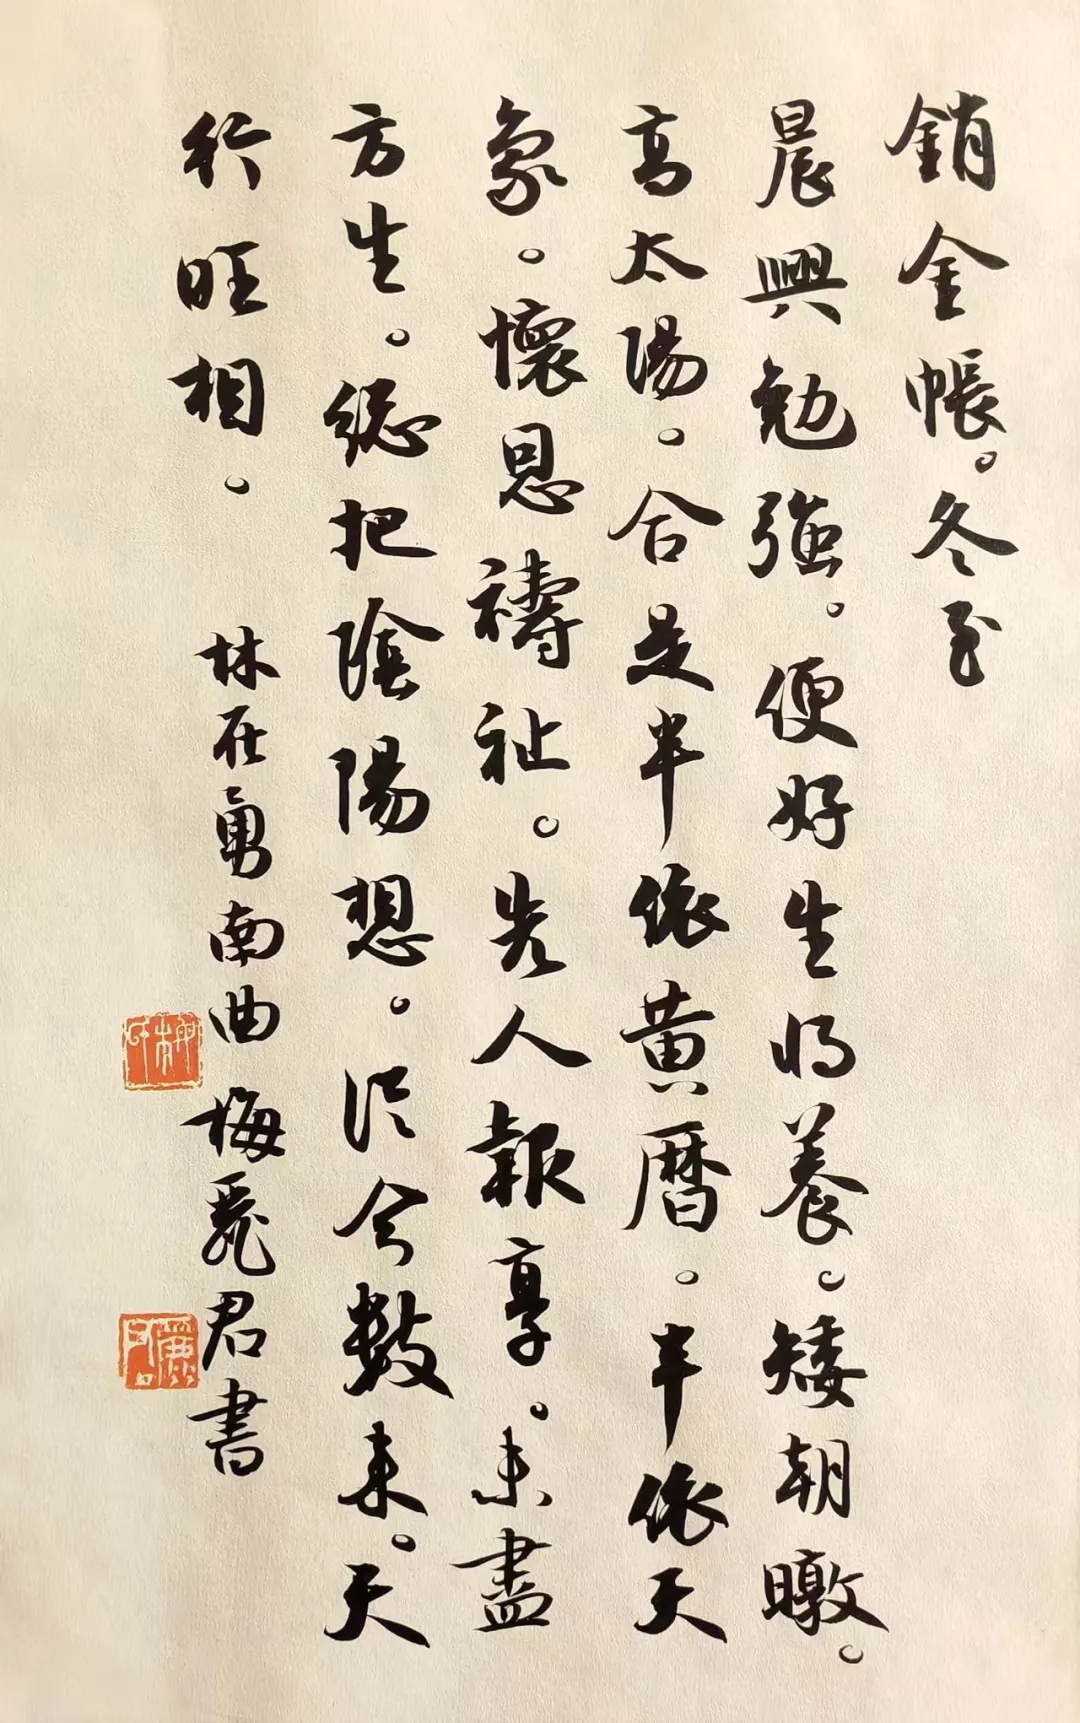 銷金帳。冬至
晨興勉強。便好生將養。矮朝暾。
高太陽。合是半依黄曆。半依天
象。懷恩禱祉。先人報享。未盡
方生。總把陰陽想。從今數来。天
行旺相。
林在勇南曲 梅君書